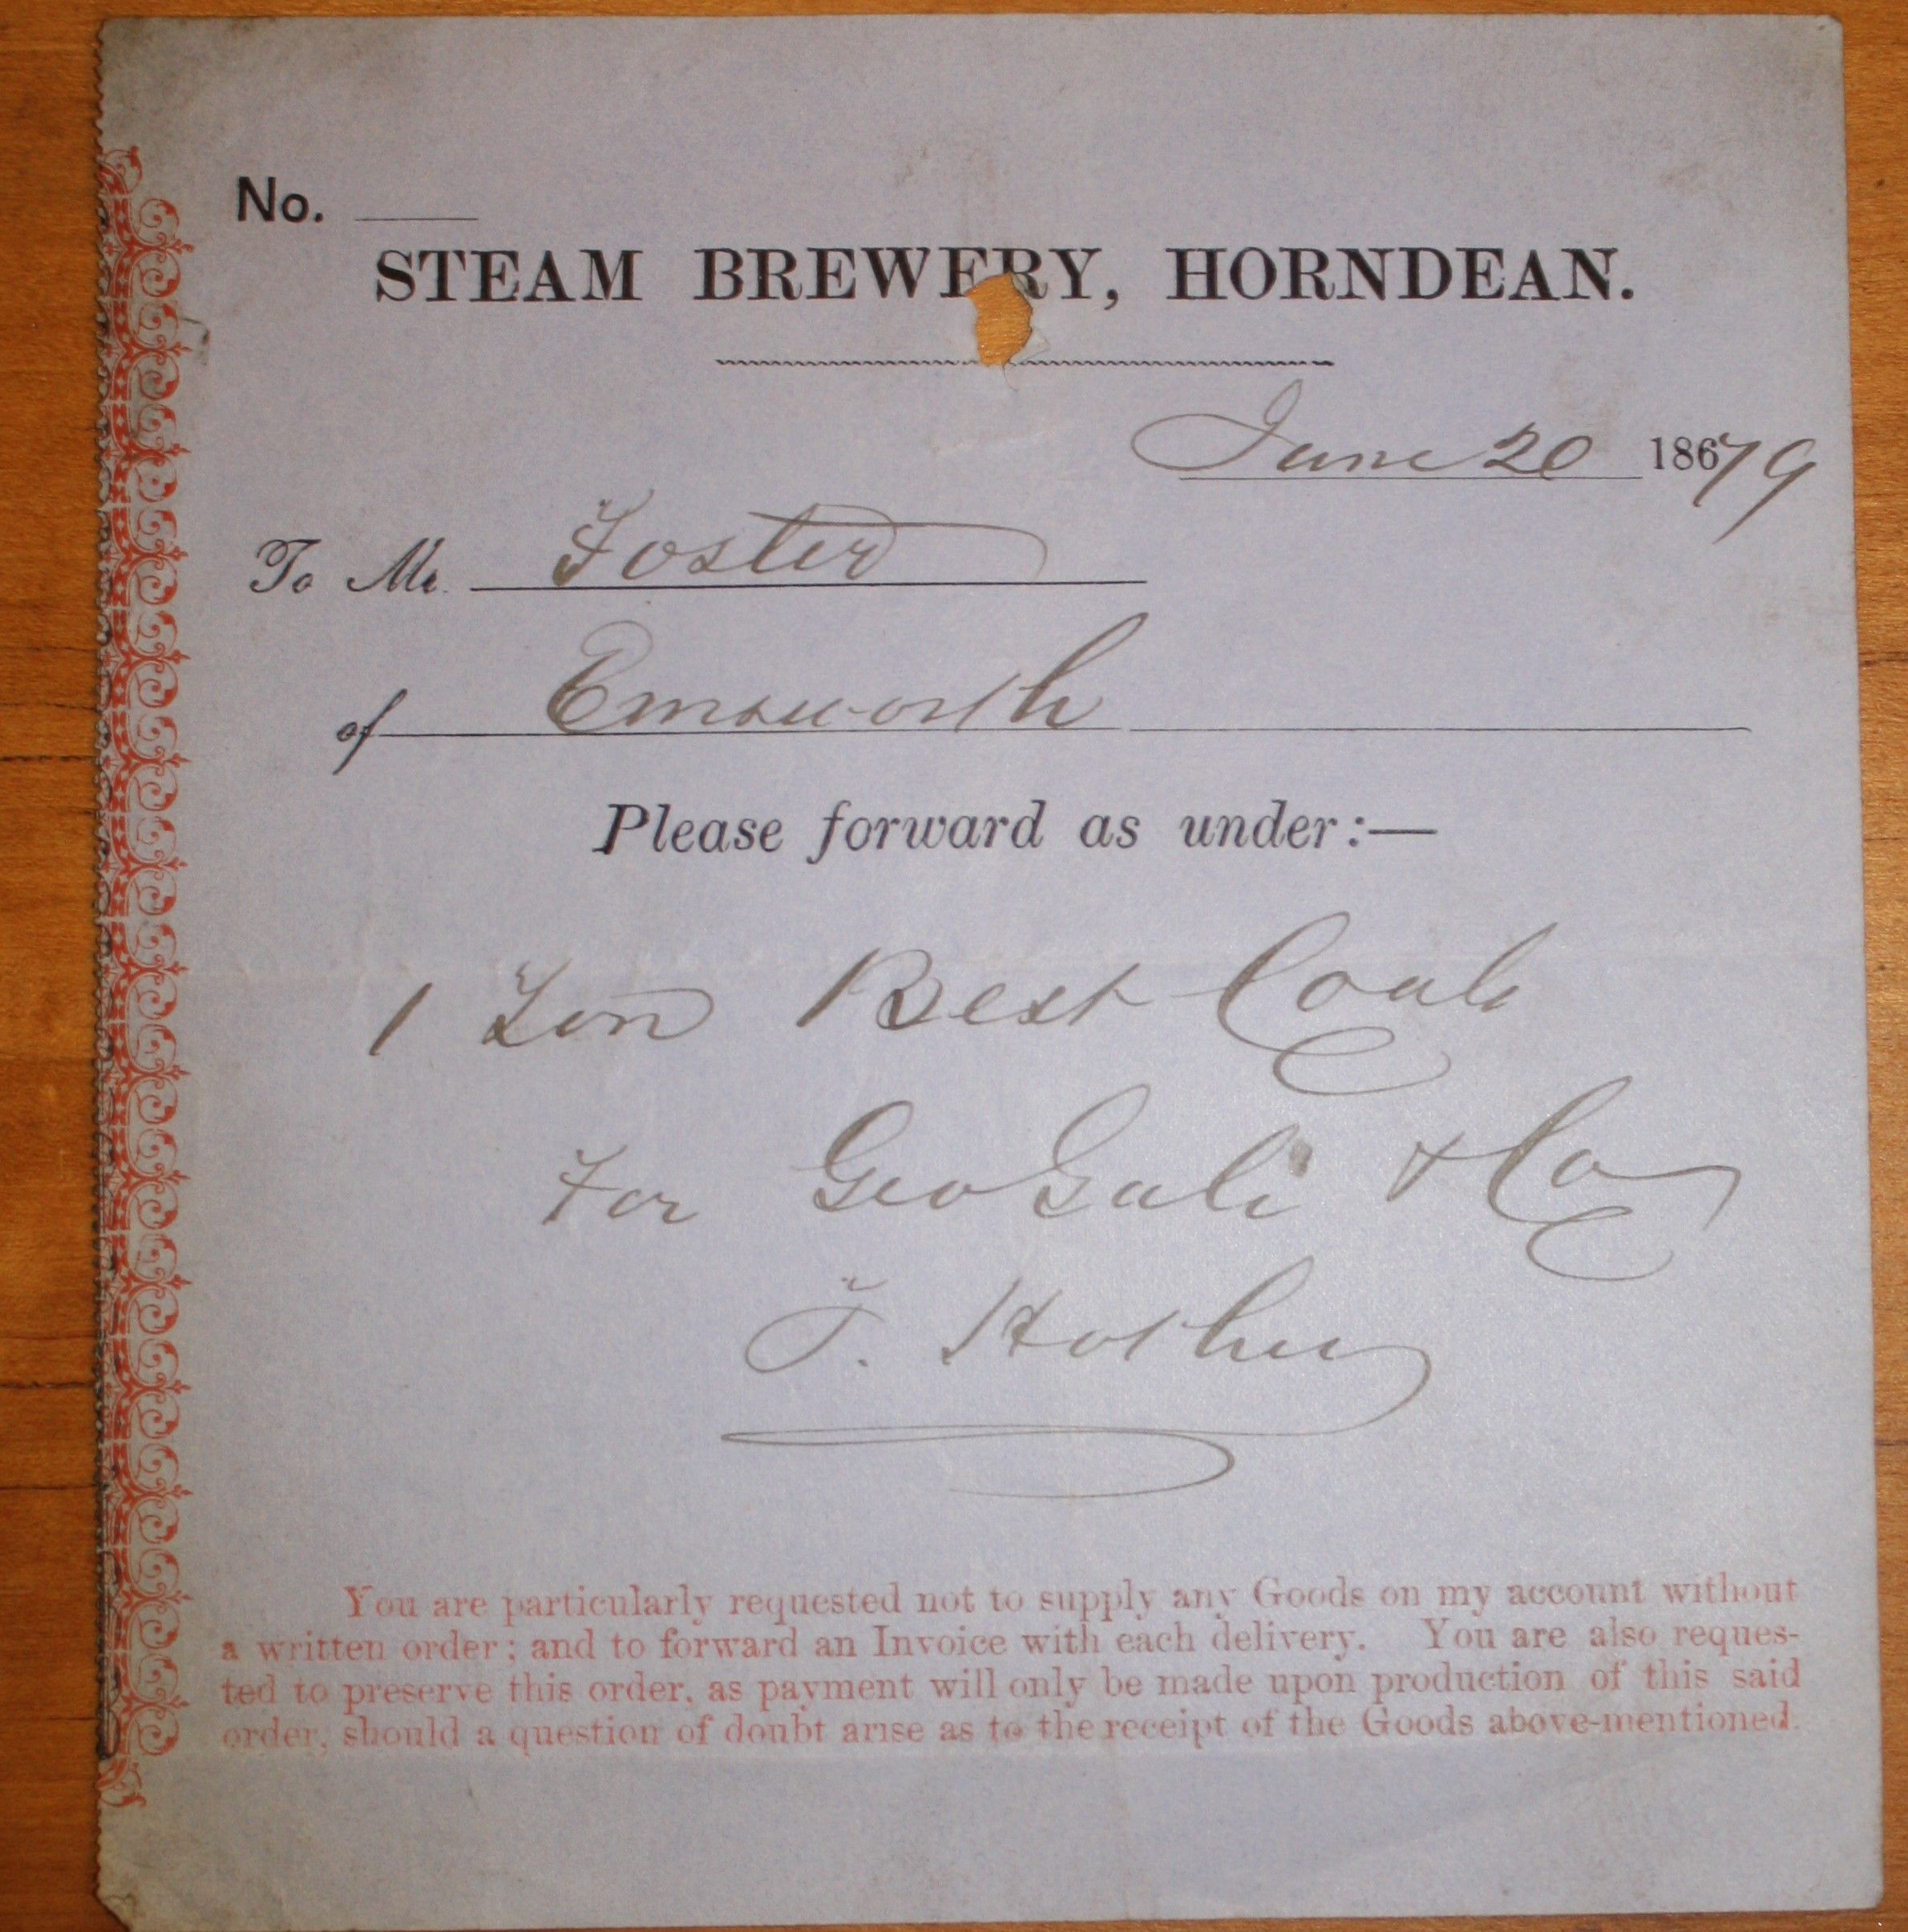 No.
STEAM BREWERY, HORNDEAN.
June 20 1879
To Mr. Foster
of Emsworth
Please forward as under:—
1 Ton Best Coals
For Geo Gale & Co
T.
You are particularly requested not to supply any Goods on my account without
a written order; and to forward an Invoice with each delivery. You are also reques-
ted to preserve this order, as payment will only be made upon production of this said
order, should a question of doubt arise as to the receipt of the Goods above-mentioned.